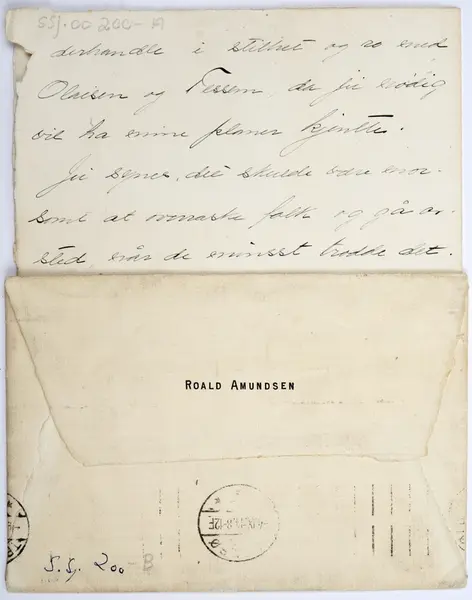 SSJ.00 200-A
derhandle i stillhet og ro med
Olaisen og Tessem, da jeg nødig
vil ha mine planer kjendte.
Jeg synes, det skulde være mor-
somt at overraske folk og gå av-
sted, når de minsst trodde det.
ROALD AMUNDSEN
S.Sj. 200 - B